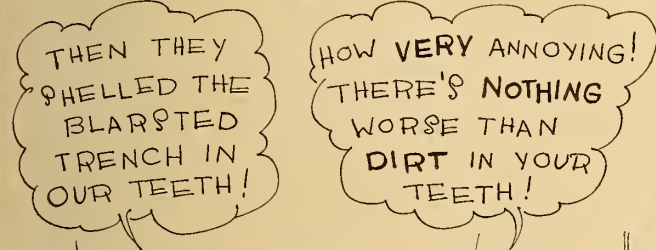 THEN THEY
SHELLED THE
BLARSTED
TRENCH IN
OUR TEETH!
HOW VERY ANNOYING!
THERE'S NOTHING
WORSE THAN
DIRT IN YOUR
TEETH!